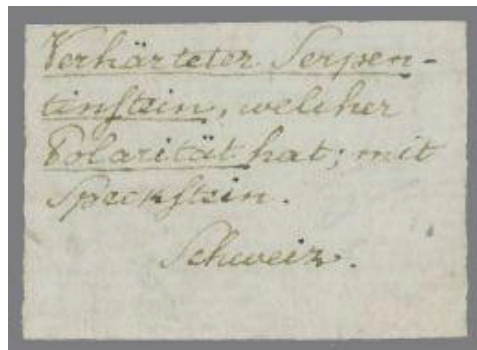 Verhärteter Serpen-
tinstein, welcher
Polarität hat; mit
Speckstein.
Schweiz.